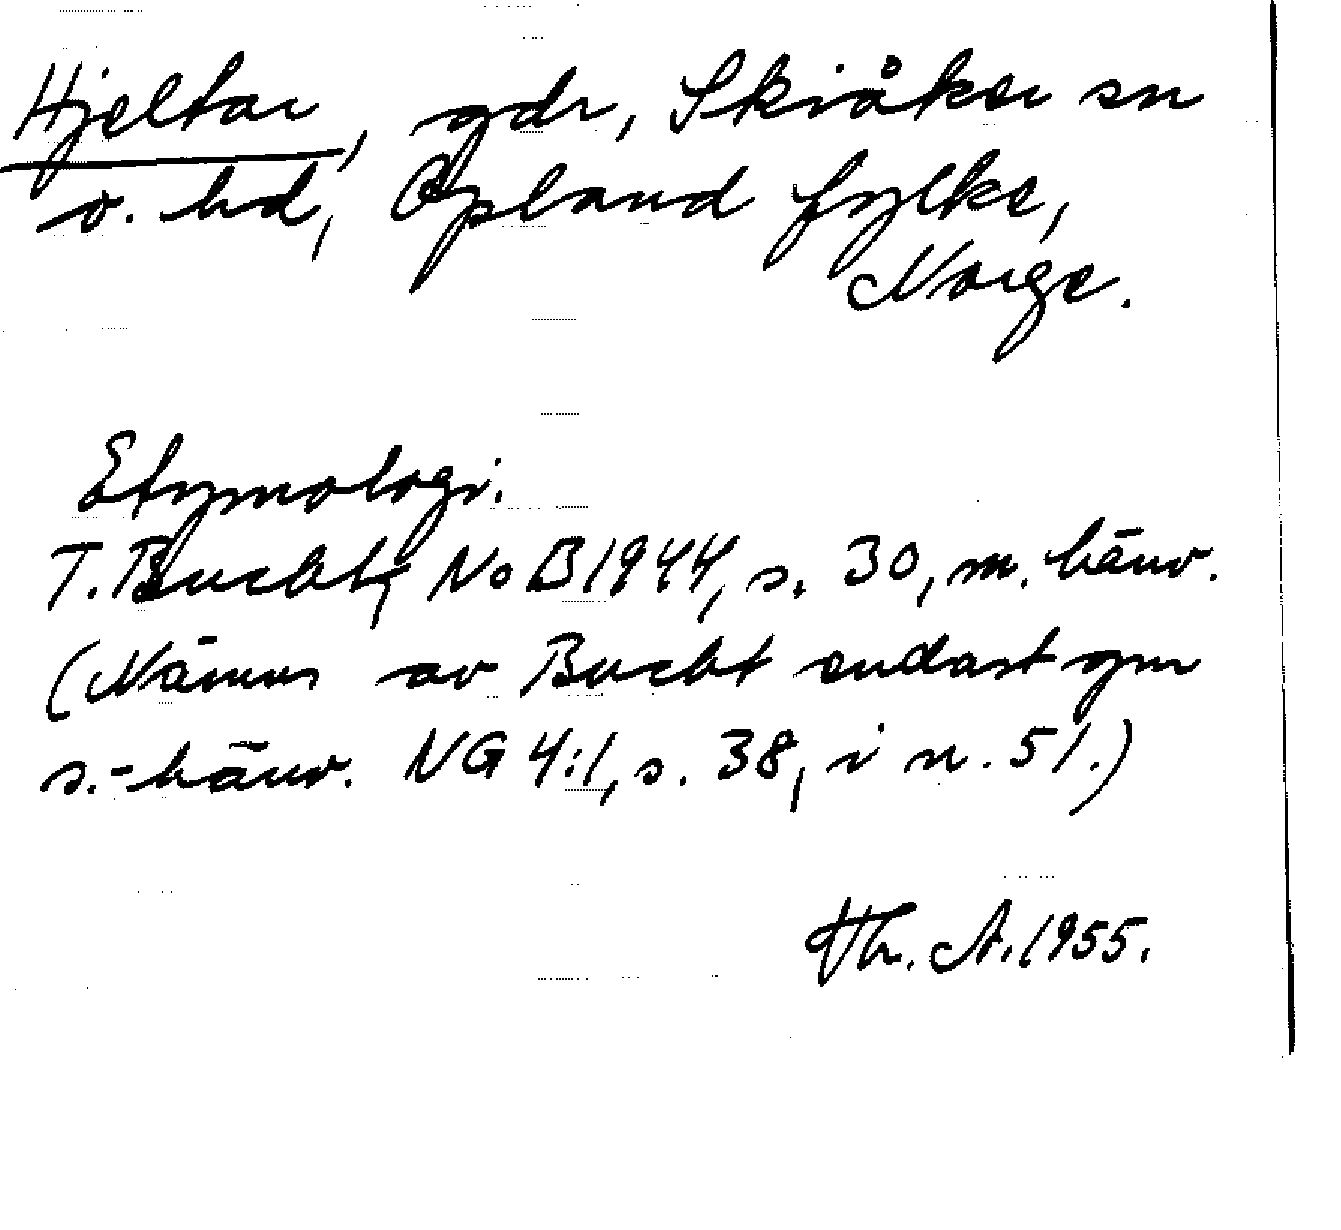 Hjeltar, gdr, Skiåker sn
o. hd, Opland fylke,
Norge.
Etymologi.
T. Bucht, NoB 1944, s. 30, m. hänv.
(Nämns av Bucht endast gm
s.-hänv. NG 4:1, s. 38, i n. 51.)
Th. A. 1955.